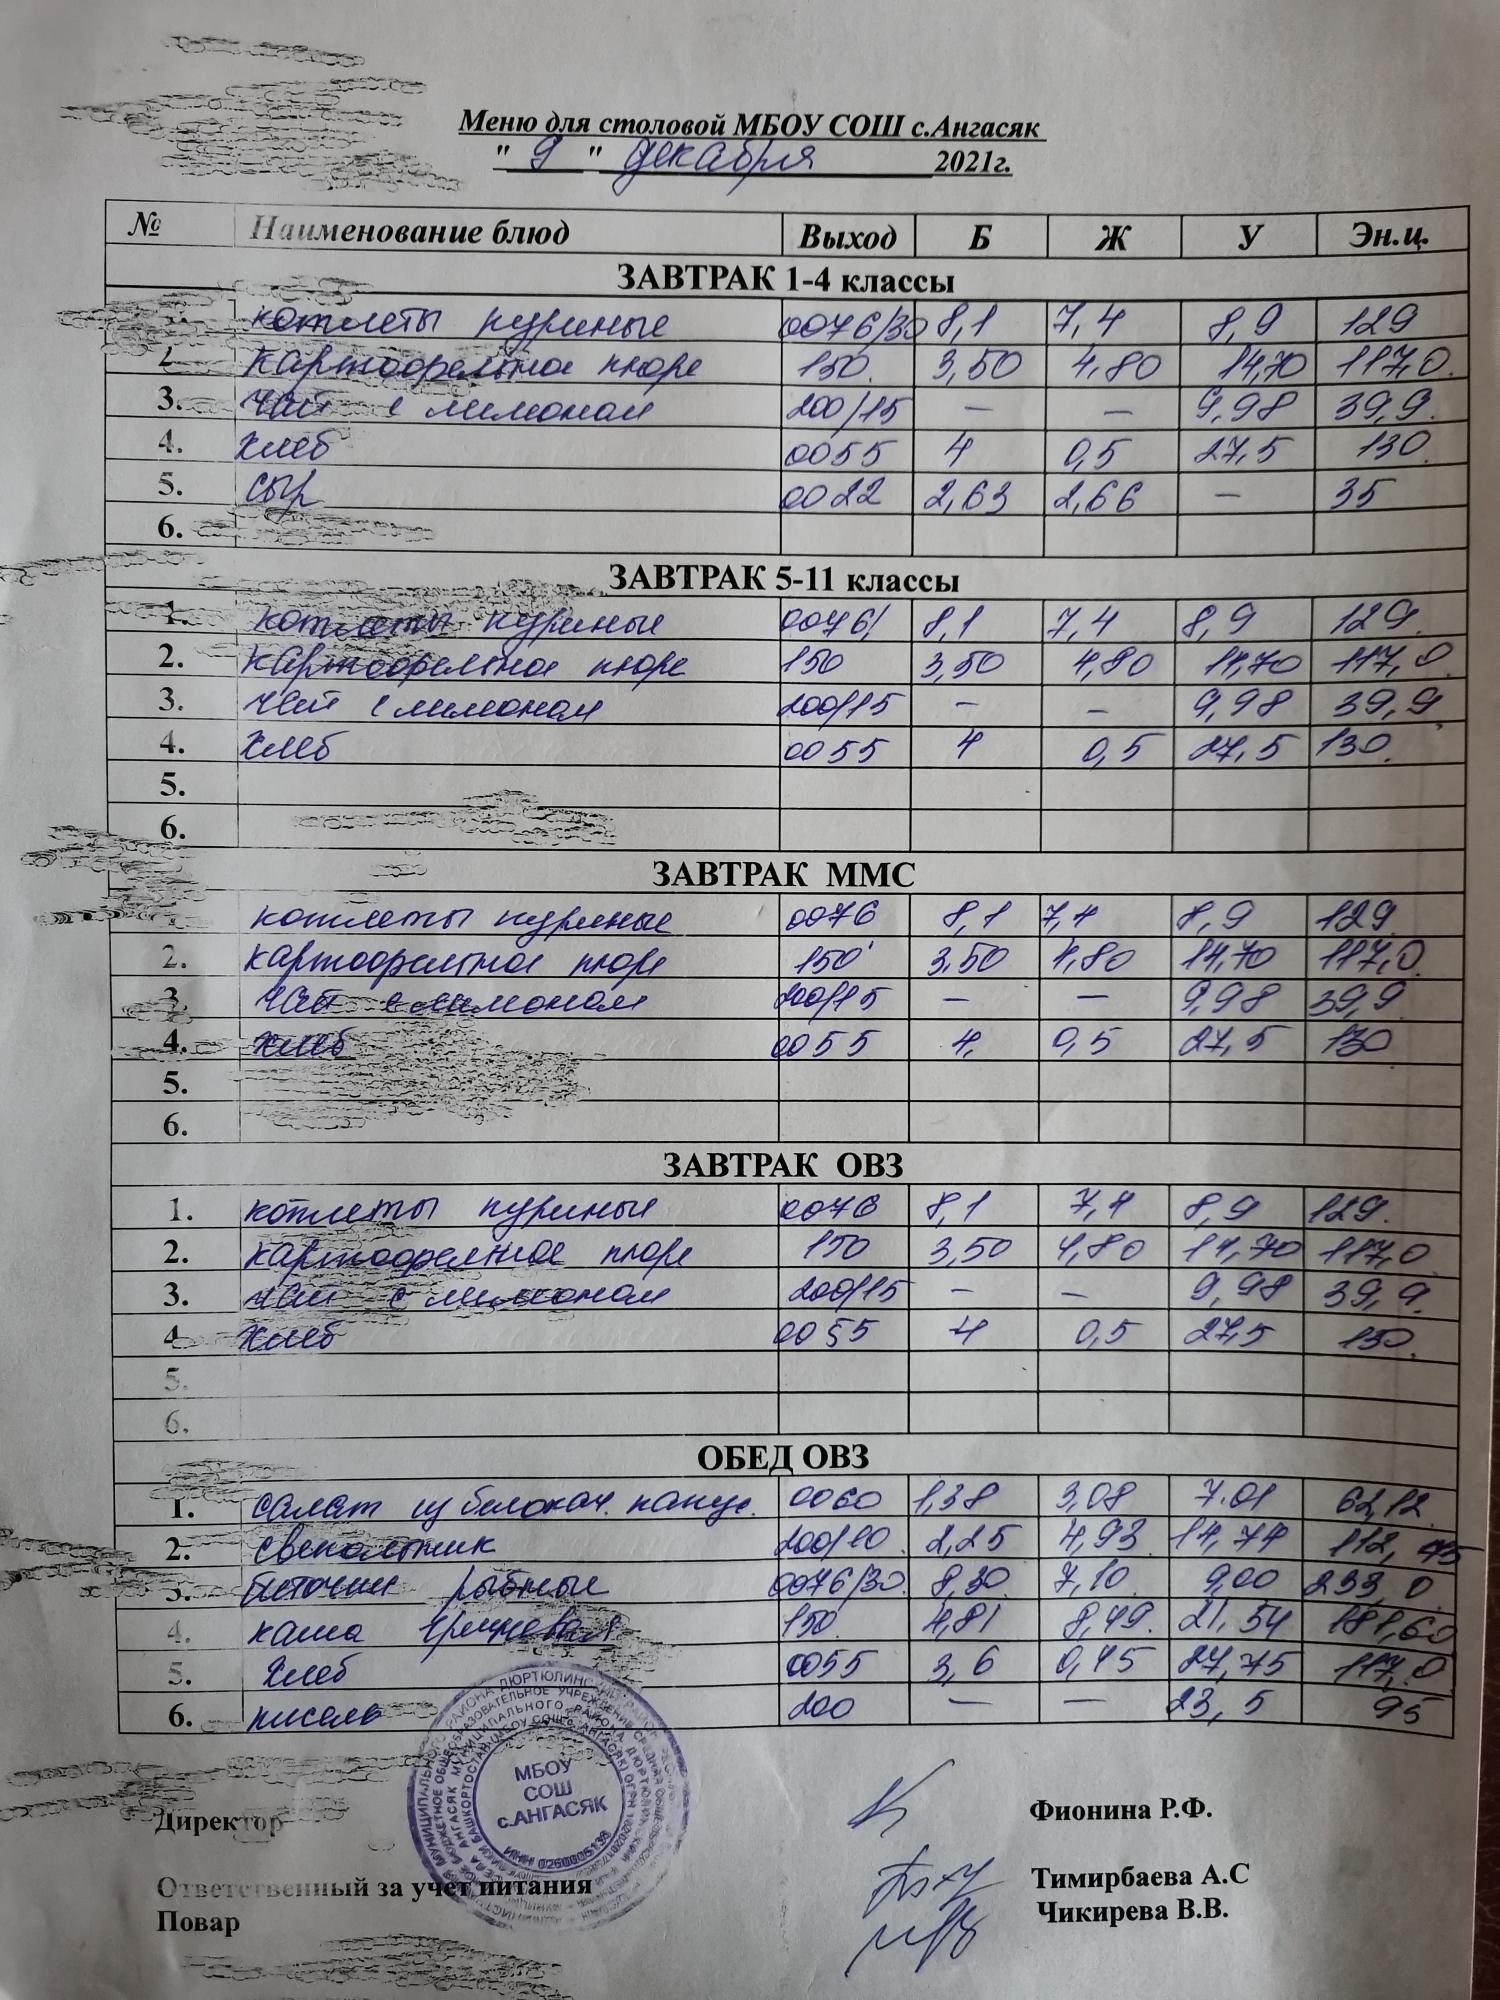 Меню для столовой МБОУ СОШ с.Ангасяк
" 9 " декабря 2021г.
№ Наименование блюд Выход Б Ж У Эн.ц.
ЗАВТРАК 1-4 классы
котлеты куриные 0076/30 8,1 7,4 8,9 129
2 картофельное пюре 150. 3,50 4,80 14,70 117,0.
3. чай с лимоном 200/15 — — 9,98 39,9.
4. хлеб 0055 4 0,5 27,5 130.
5. сыр 0022 2,63 2,66 — 35
6.
ЗАВТРАК 5-11 классы
1. котлеты куриные 0076/ 8,1 7,4 8,9 129.
2. картофельное пюре 150 3,50 4,80 14,70 117,0
3. чай с лимоном 200/15 — — 9,98 39,9.
4. хлеб 0055 4 0,5 27,5 130.
5.
6.
ЗАВТРАК ММС
котлеты куриные 0076 8,1 7,4 8,9 129.
2. картофельное пюре 150 3,50 4,80 14,70 117,0.
3. чай с лимоном 200/15 — — 9,98 39,9.
4. хлеб 0055 4. 0,5 27,5 130
5.
6.
ЗАВТРАК ОВЗ
1. котлеты куриные 0076 8,1 7,4 8,9 129.
2. картофельное пюре 150 3,50 4,80 14,70 117,0.
3. чай с лимоном 200/15 — — 9,98 39,9.
4 хлеб 0055 4 0,5 27,5 130.
5.
6.
ОБЕД ОВЗ
1. салат из белокач. капус. 0060 1,38 3,08 7.01 62,12.
2. свекольник 200/10. 2,25 4,93. 14,74 112,75
3. биточки рыбные 0076/30. 8,30 7,10. 9,00 233,0.
4. каша гречневая 150. 4,81 8,49. 21.54 181,60
5. хлеб 0055 3,6 0,45 24,75 117,0
6. кисель 200 — — 23,5 95
МБОУ
СОШ
с.АНГАСЯК
ИНН 0260005138
Директор Фионина Р.Ф.
Ответственный за учет питания Тимирбаева А.С
Повар Чикирева В.В.